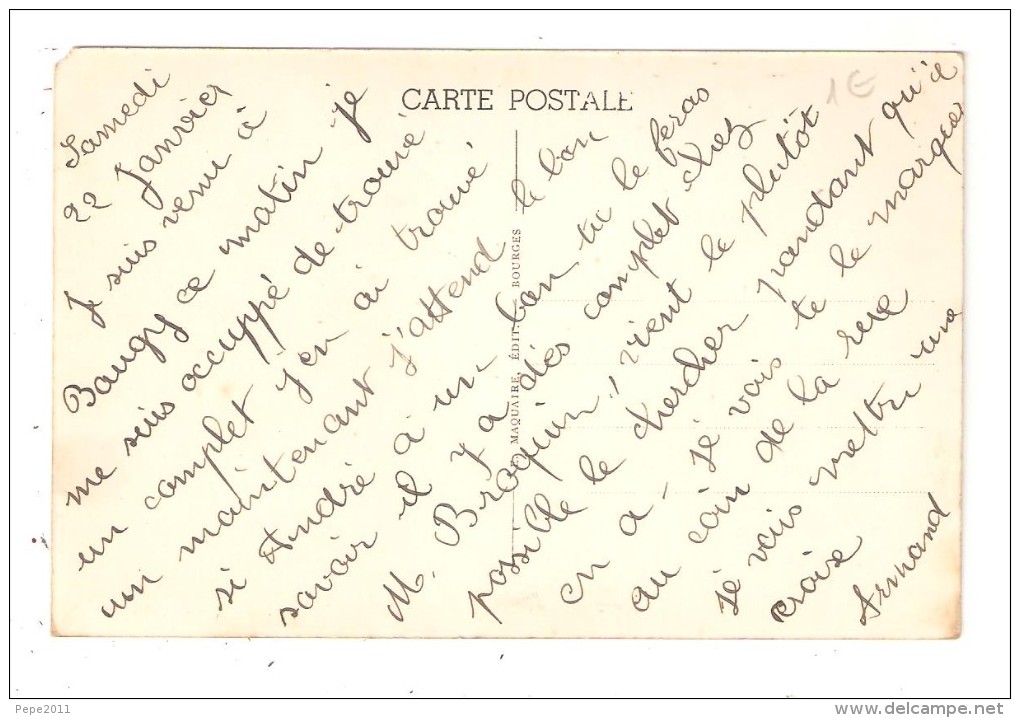 CARTE POSTALE
1€
Samedi
22 Janvier
Je suis venu à
Baugy ce matin je
me suis occuppé de trouvé
un complet j'en ai trouvé
un maintenant j'attend le bon
si André à un bon tu le feras
savoir il y a dés complet chez
M. Broquin, vient le plutôt
possible le chercher pandant qu'il
en a - je vois te le marquer
au coin de la rue
je vais mettre une
croix
Armand
MAQUAIRE, ÉDIT. BOURGES
Pepe2011
www.delcampe.net